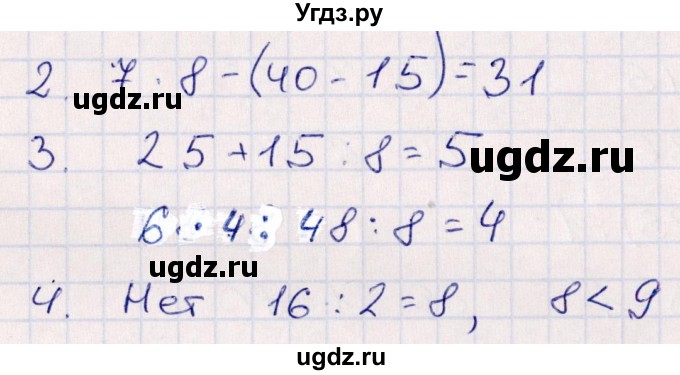 Угдз.ру
2. 7 · 8 - (40 - 15) = 31
ugdz.ru
3. 25 + 15 : 8 = 5
ugdz.ru
6 · 4 : 48 : 8 = 4
ugdz.ru
4. Нет 16 : 2 = 8, 8 < 9
ugdz.ru
ugdz.ru